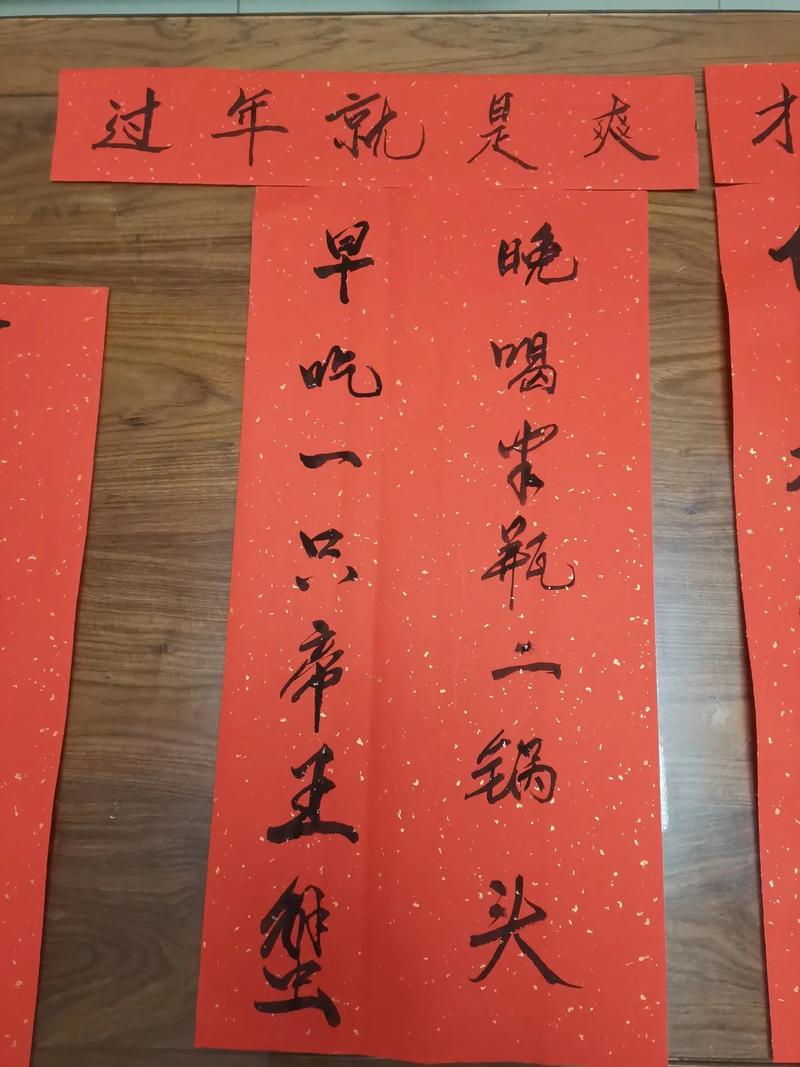 过年就是爽
早吃一只帝王蟹
晚喝半瓶二锅头
才